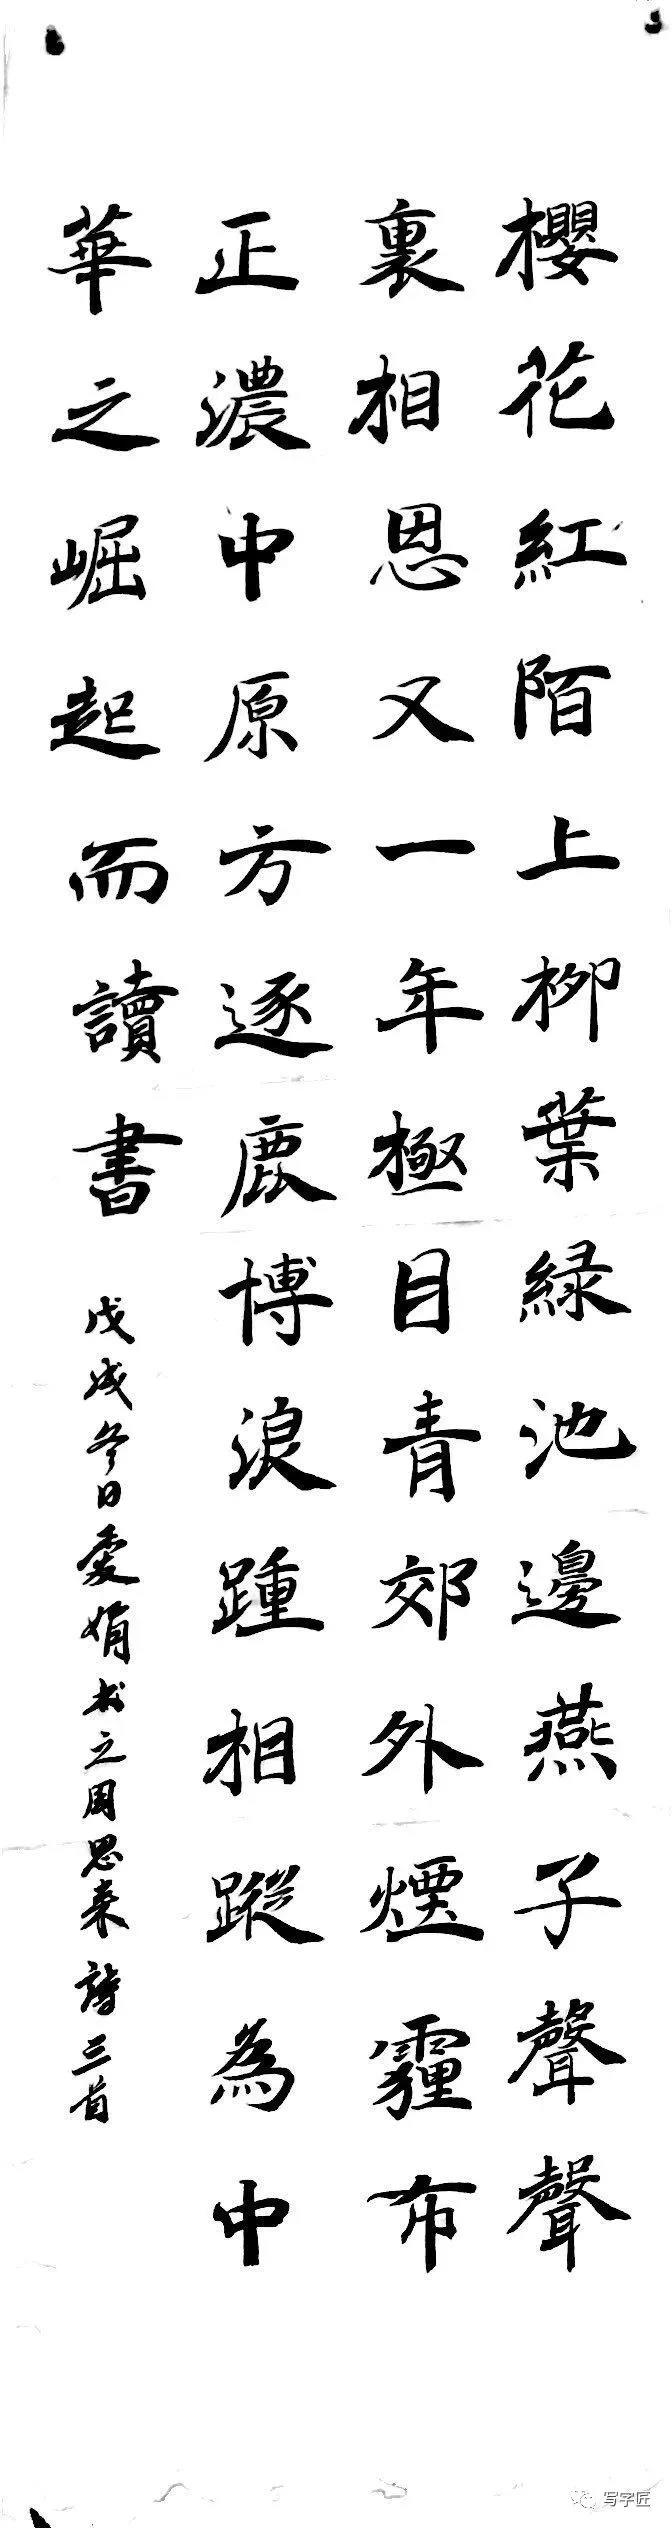 櫻花紅陌上柳葉緑池邊燕子聲聲
裏相恩又一年極目青郊外煙霾布
正濃中原方逐鹿博浪踵相蹤為中
華之崛起而讀書
戊戌冬日愛娟书之周恩来詩三首
写字匠